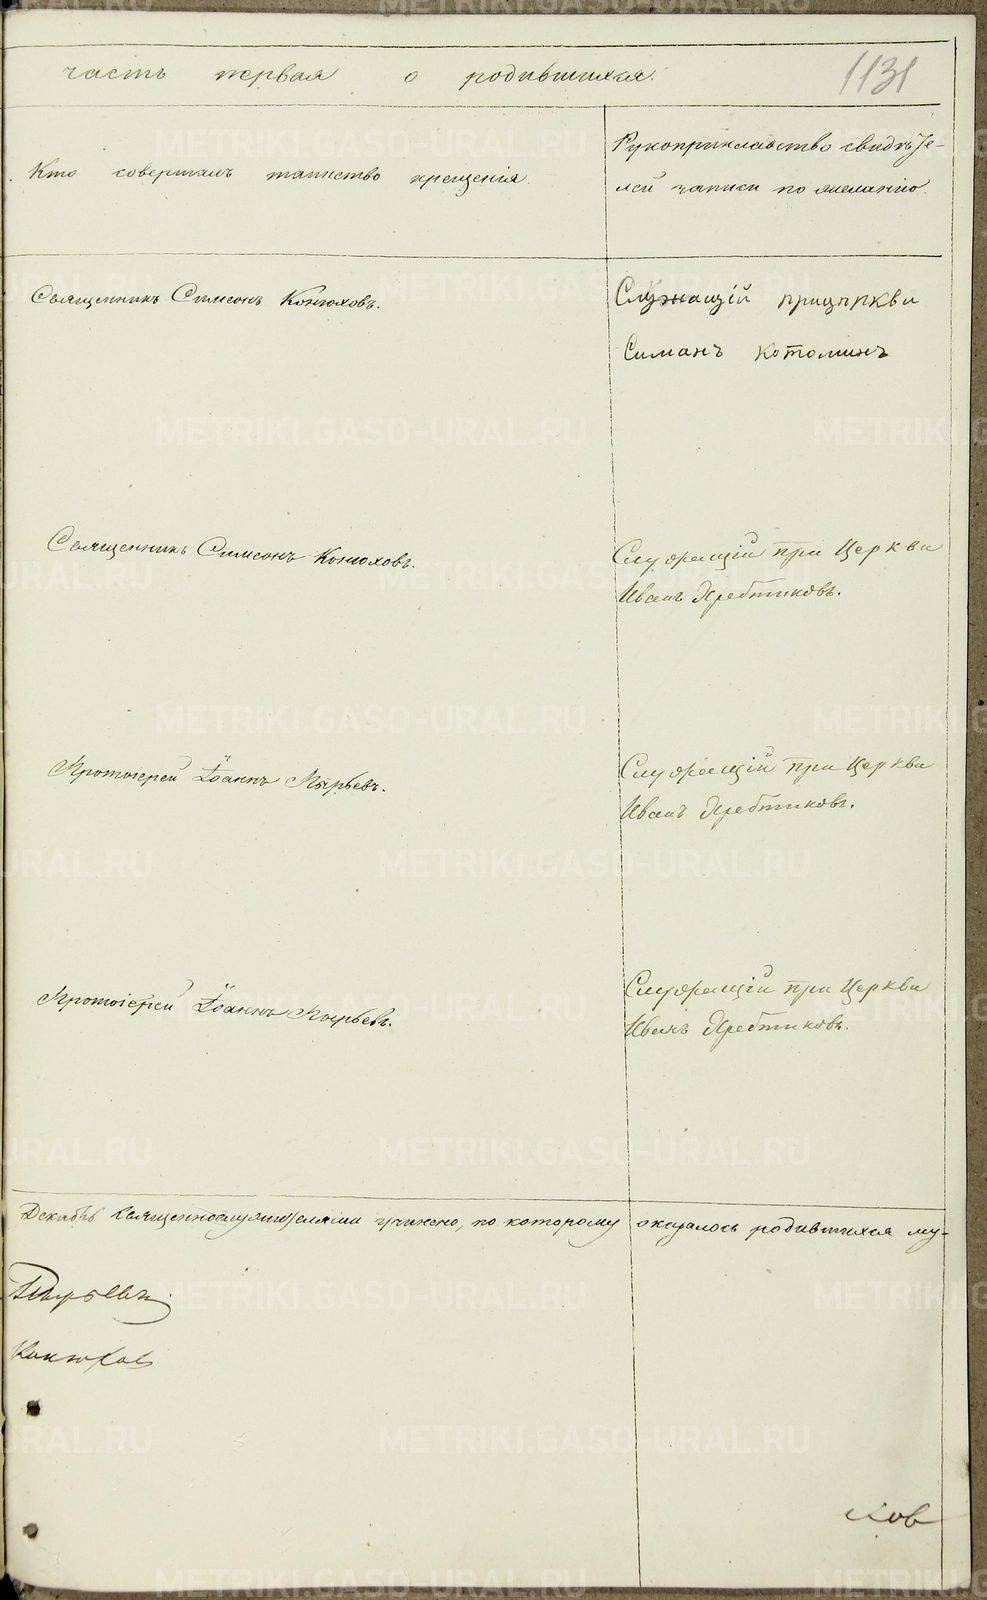 часть первая о родившихся.
1131
Кто совершалъ таинство крещенія.
Рукоприкладство свидѣте-
лей записи по желанію.
Священникъ Симеонъ Конюховъ.
Служащій прицѣркви
Симанъ Котоминъ
Священникъ Симеонъ Конюховъ.
Служащій при Церкви
Иванъ Хребтиковъ.
Протоіерей Іоаннъ Пырьевъ.
Служащій при Церкви
Иванъ Хребтиковъ.
Протоіерей Іоаннъ Пырьевъ.
Служащій при Церкви
Иванъ Хребтиковъ.
Декабрь священнослужителями учинено, по которому оказалось родившихся му-
Пырьевъ
Конюховъ
ков
METRIKI.GASO-URAL.RU